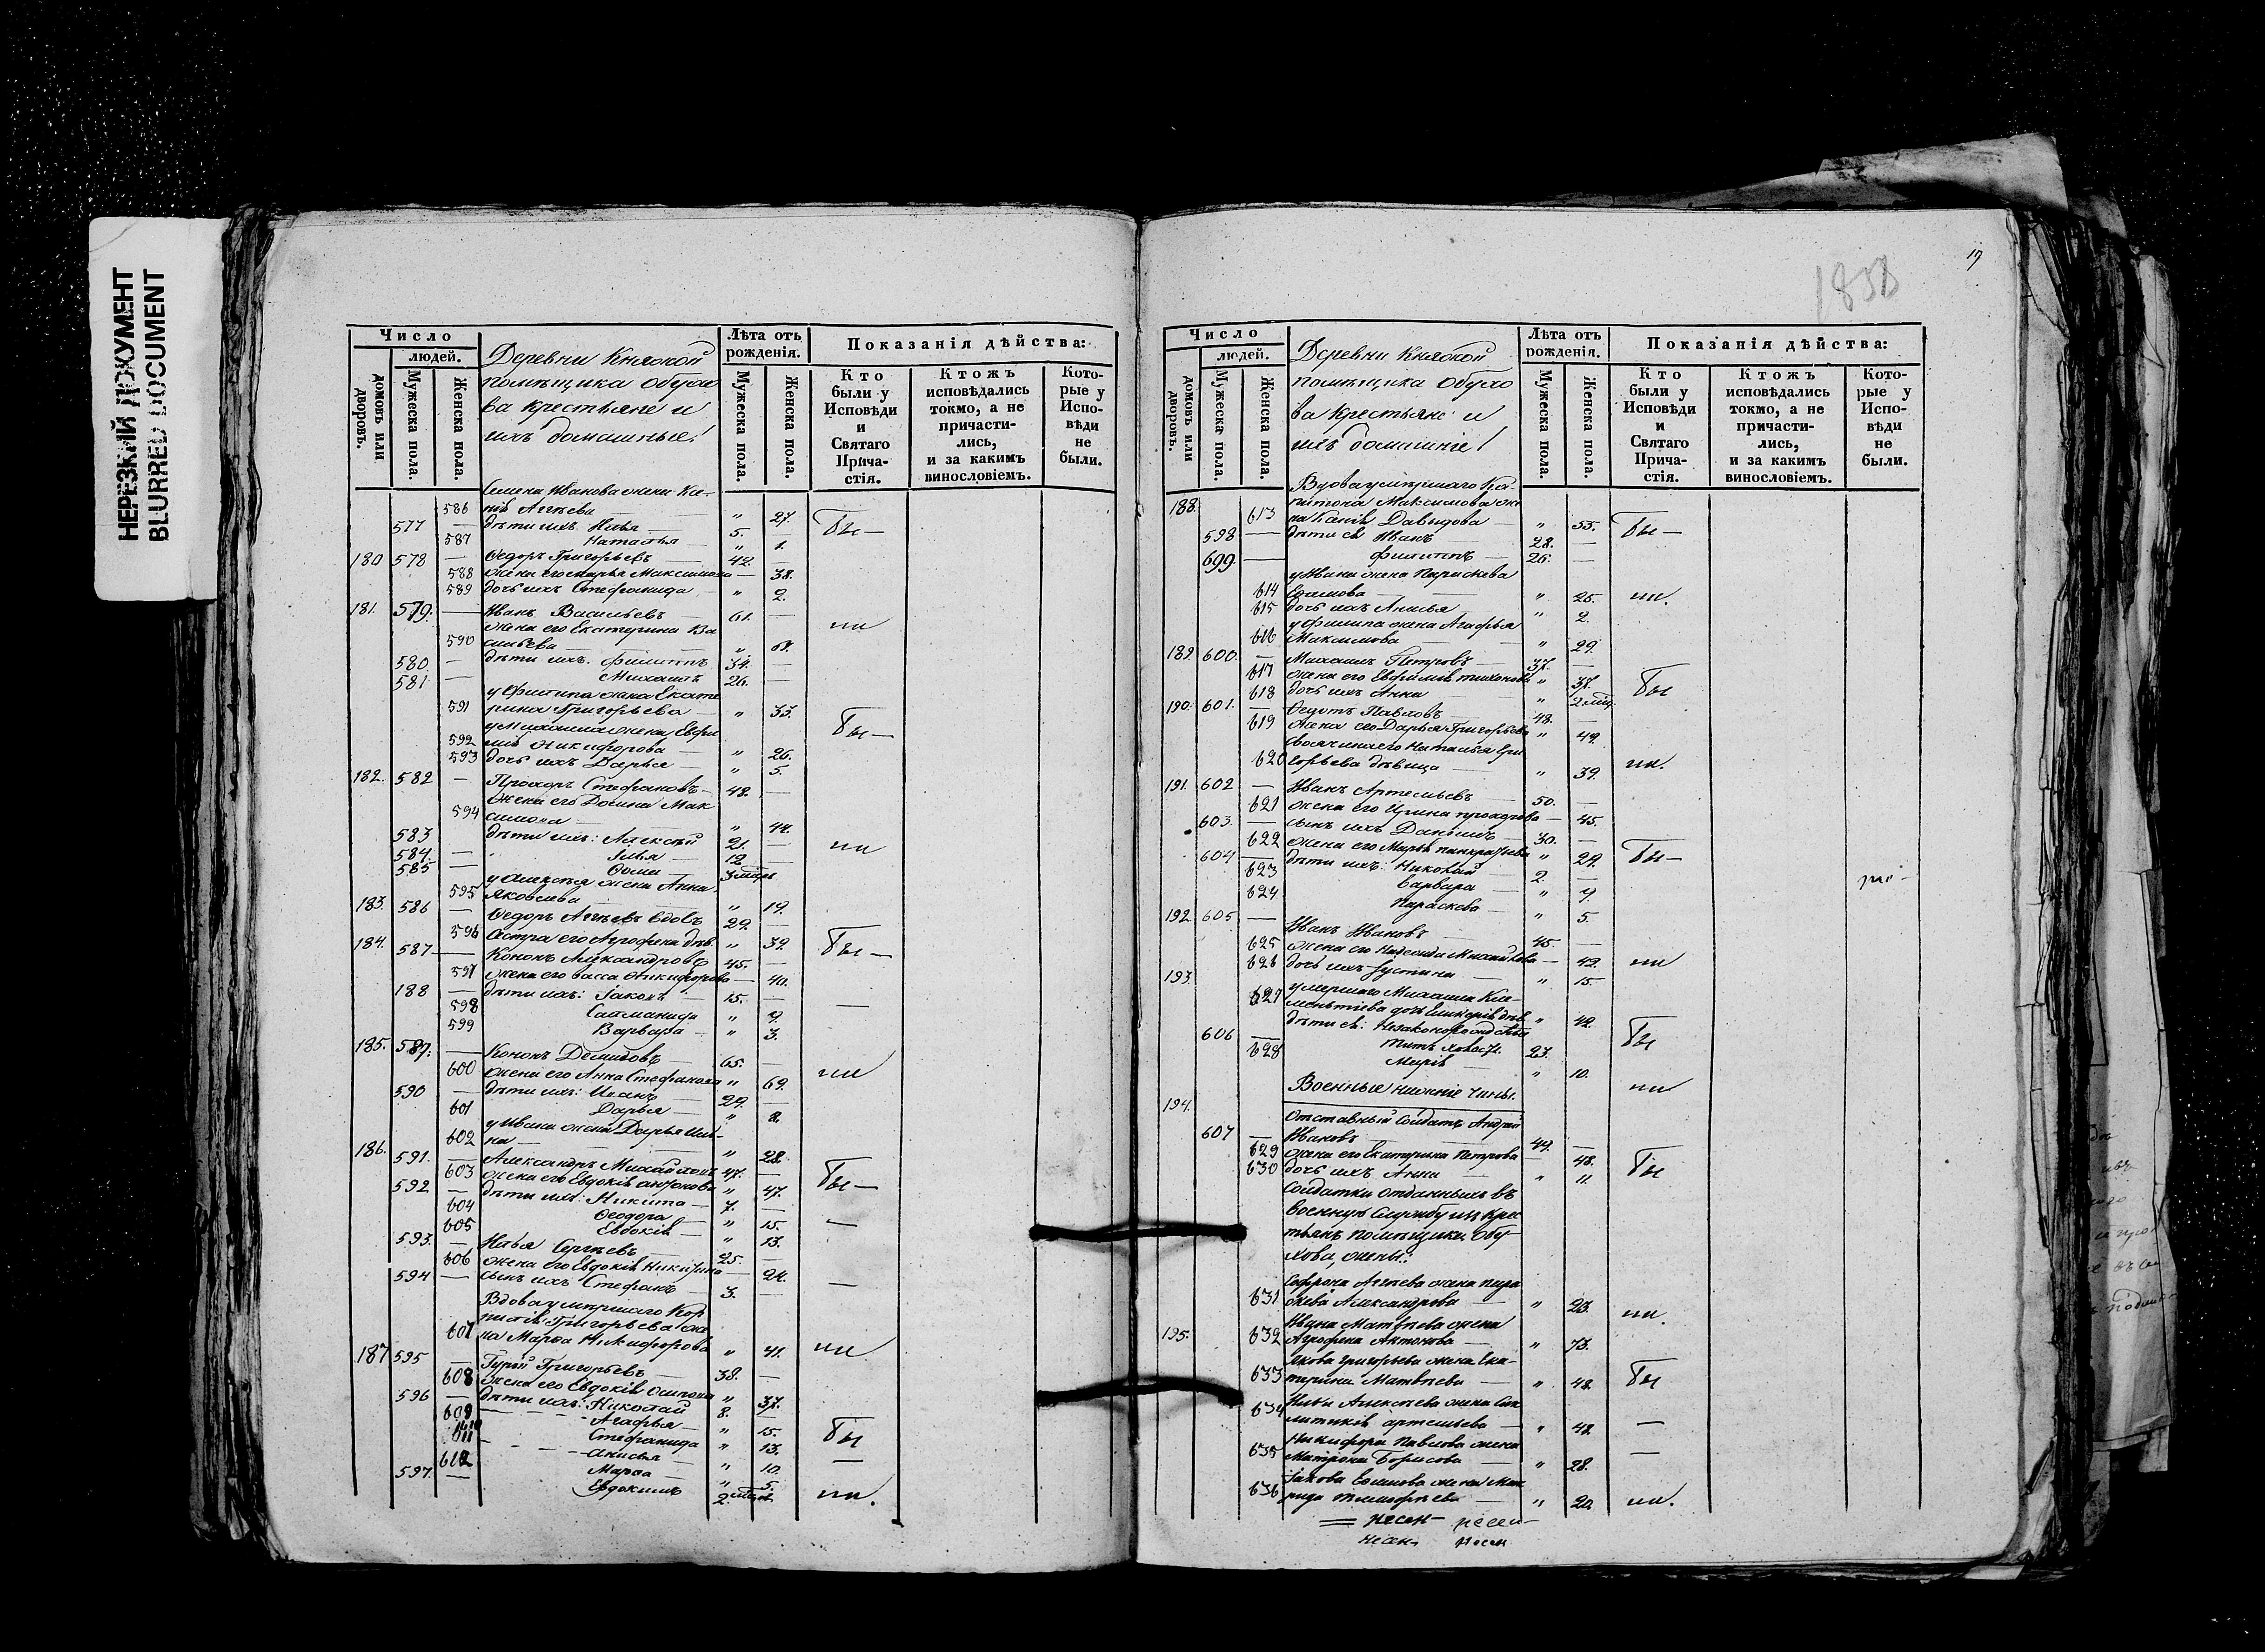 НЕРЕЗКИЙ ДОКУМЕНТ
BLURRED DOCUMENT
Число
людей.
домовъ или дворовъ.
Мужеска пола.
Женска пола.
Деревни Княжой
помѣщика Обухо
ва крестьяне и
ихъ домашные:
Лѣта отъ рожденія.
Мужеска пола.
Женска пола.
Показанія дѣйства:
Кто были у Исповѣди и Святаго Прича-стія.
Ктожъ исповѣдались токмо, а не причасти-лись, и за какимъ винословіемъ.
Кото-рые у Испо-вѣди не были.
Семена Иванова жена Ксе-
586 нія Агѣева — " 27. Бы —
577 — дѣти ихъ Илья — 5. —
587 Наталья — " 1.
180 578 — Ѳедоръ Григорьевъ — 42. —
588 жена его Марья Максимова — 38.
589 дочь ихъ Стефанида — " 2.
181. 579. — Иванъ Васильевъ 61. —
жена его Екатерина Ва ли
590 сильева — " 61.
580. — дѣти ихъ: Филиппъ 34. —
581 — Михаилъ 26. —
у Филипа жена Екате
591 рина Григорьева — " 33.
у Михаила жена Евфи Бы —
592 мія Никифорова — " 26.
593 дочь ихъ Дарья — " 5.
182. 582 — Прохоръ Стефановъ — 48. —
жена его Домна Мак
594 симова — " 44.
583 дѣти ихъ: Алексѣй 21. — ли
584. — Илья — 12 —
585 — Ѳома — 3 мѣсяц
у Алексѣя жена Анна
595 Яковлева — " 19.
183. 586 — Ѳедоръ Агѣевъ вдовъ 29. —
596 Сестра его Агрофена дѣв. " 39. Бы —
184. 587 — Кононъ Александровъ 45. —
597 жена его Васса Никифорова — 40.
188 — дѣти ихъ: Іаковъ — 15. —
598 " 9.
599 Варвара — " 3.
185. 587. — Кононъ Демидовъ — 65. —
600 жена его Анна Стефанова " 69. ли
590 — дѣти ихъ: Иванъ — 29. —
601 Дарья — " 8.
у Ивана жена Дарья Иль-
602 на — " 28.
186. 591. — Александръ Михайловъ 47. —
603 жена его Евдокія Антонова " 47. Бы —
592 — дѣти ихъ: Никита — 7. —
604 Ѳеодора — " 15. —
605 Евдокія — " 13.
593. — Илья Сергѣевъ — 25.
606 жена его Евдокія Никитина — 24.
594 — сынъ ихъ Стефанъ — 3. —
Вдова умершаго Кор
нилія Григорьева же
607 на Марѳа Никифорова " 41. ли
187 595 — Гурій Григорьевъ 38. —
608 жена его Евдокія Осипова " 37.
596 — дѣти ихъ: Николай 8. —
609 Агафья — " 15. Бы
611 Стефанида " 13.
612 Анисья — " 10. —
Марѳа — " 5.
597. — Евдокимъ 2 мѣсяц ли.
1858
19
Число
людей.
домовъ или дворовъ.
Мужеска пола.
Женска пола.
Деревни Княжой
помѣщика Обухо
ва крестьяне и
ихъ домашніе!
Лѣта отъ рожденія.
Мужеска пола.
Женска пола.
Показанія дѣйства:
Кто были у Исповѣди и Святаго Прича-стія.
Ктожъ исповѣдались токмо, а не причасти-лись, и за какимъ винословіемъ.
Кото-рые у Испо-вѣди не были.
Вдова умершаго Ка-
188. питона Максимова же
613 на Давыдова — " 55. Бы —
598 — дѣти ея Иванъ 28. —
699. — Филиппъ 26. —
у Ивана жена Парасκева
614 — " 25. ли.
615 дочь ихъ Анисья — " 2.
у Филипа жена Агафья
616 Максимова — " 29.
189. 600. — Михаилъ Петровъ — 37. —
617 жена его Евфимія Тихонова " 37. Бы
618 дочь ихъ Анна — " 2 мѣц.
190. 601. — Ѳедотъ Павловъ — 48. —
619 жена его Дарья Григорьева " 49.
Свояченица его Наталья Гри
620 горьева дѣвица — " 39. ли.
191. 602 — Иванъ Артемьевъ — 50. —
621 жена его Ирина Прохорова — 45.
603. — сынъ ихъ Даніилъ 30. —
622 жена его Марья Панкратьева " 29. Бы —
604 — дѣти ихъ: Николай 2. —
623 Варвара — " 9.
624 Параскева — " 5.
192. 605 — Иванъ Ивановъ — 45. —
625 жена его Надежда Михайлова — 42. ли
626 дочь ихъ Іустина — " 15.
193. умершаго Михаила Кле-
627 ментіева дочь дѣв. " 42.
606 — дѣти ея: незаконорожденные Бы
23.
628 Марія — " 10.
Военные нижніе чины. ли
194. Отставный солдатъ Андрей
607 — Ивановъ — 49. —
629 жена его Екатерина Петрова — 48. Бы
630 дочь ихъ Анна — " 11.
Солдатки отданныхъ въ
военную службу изъ крес
тьянъ помѣщика Обу
хова, жены:
Софрона Агѣева жена Пара
631 скева Александрова — " 23. ли.
Ивана Матвѣева жена
195. 632 Агрофена Антонова — " 73.
Якова Григорьева жена Ека-
633 терина Матвѣева — " 48. Бы
Ильи Алексѣева жена
634 Артемьева — " 42 —
Никифора Павлова жена
635 Матрона Борисова — " 28. —
Іакова жена Мав
636 рида Тимофѣева — " 20 ли.